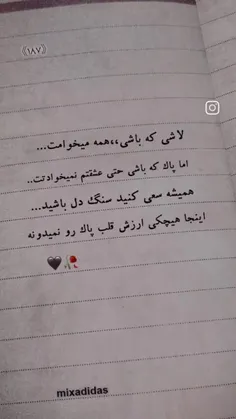 《۱۸۷》
لاشی که باشی،،همه میخوامت...
اما پاک که باشی حتی عشقتم نمیخوادتت..
همیشه سعی کنید سنگ دل باشید...
اینجا هیچکی ارزش قلب پاک رو نمیدونه
🖤🥀
mixadidas